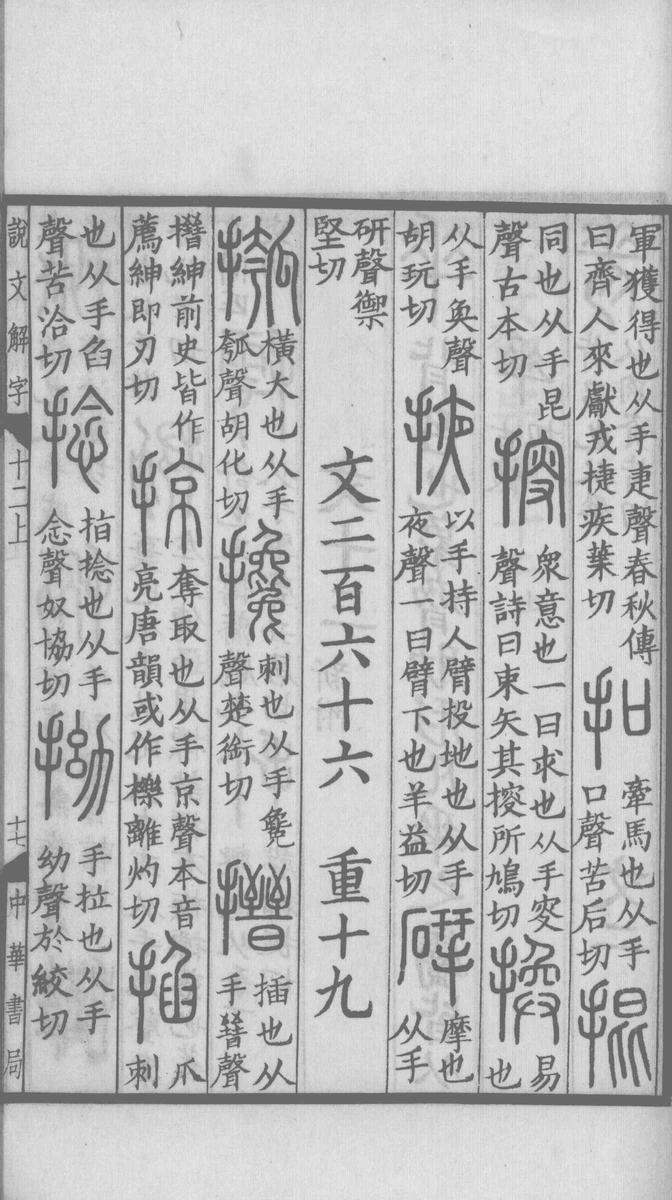 軍獲得也从手疌聲春秋傳
曰齊人來獻戎捷疾葉切
扣
牽馬也从手
口聲苦后切
掍
同也从手昆
聲古本切
搜
衆意也一曰求也从手叜
聲詩曰束矢其搜所鳩切
換
易
也
从手奐聲
胡玩切
掖
以手持人臂投地也从手
夜聲一曰臂下也羊益切
揅
摩也
从手
研聲禦
堅切
文二百六十六 重十九
摦
橫大也从手
瓠聲胡化切
攙
刺也从手毚
聲楚銜切
搢
插也从
手晉聲
搢紳前史皆作
薦紳即刃切
掠
奪取也从手京聲本音
亮唐韻或作擽離灼切
掐
爪
刺
也从手臽
聲苦洽切
捻
指捻也从手
念聲奴協切
拗
手拉也从手
幼聲於絞切
說文解字 十二上 十七 中華書局